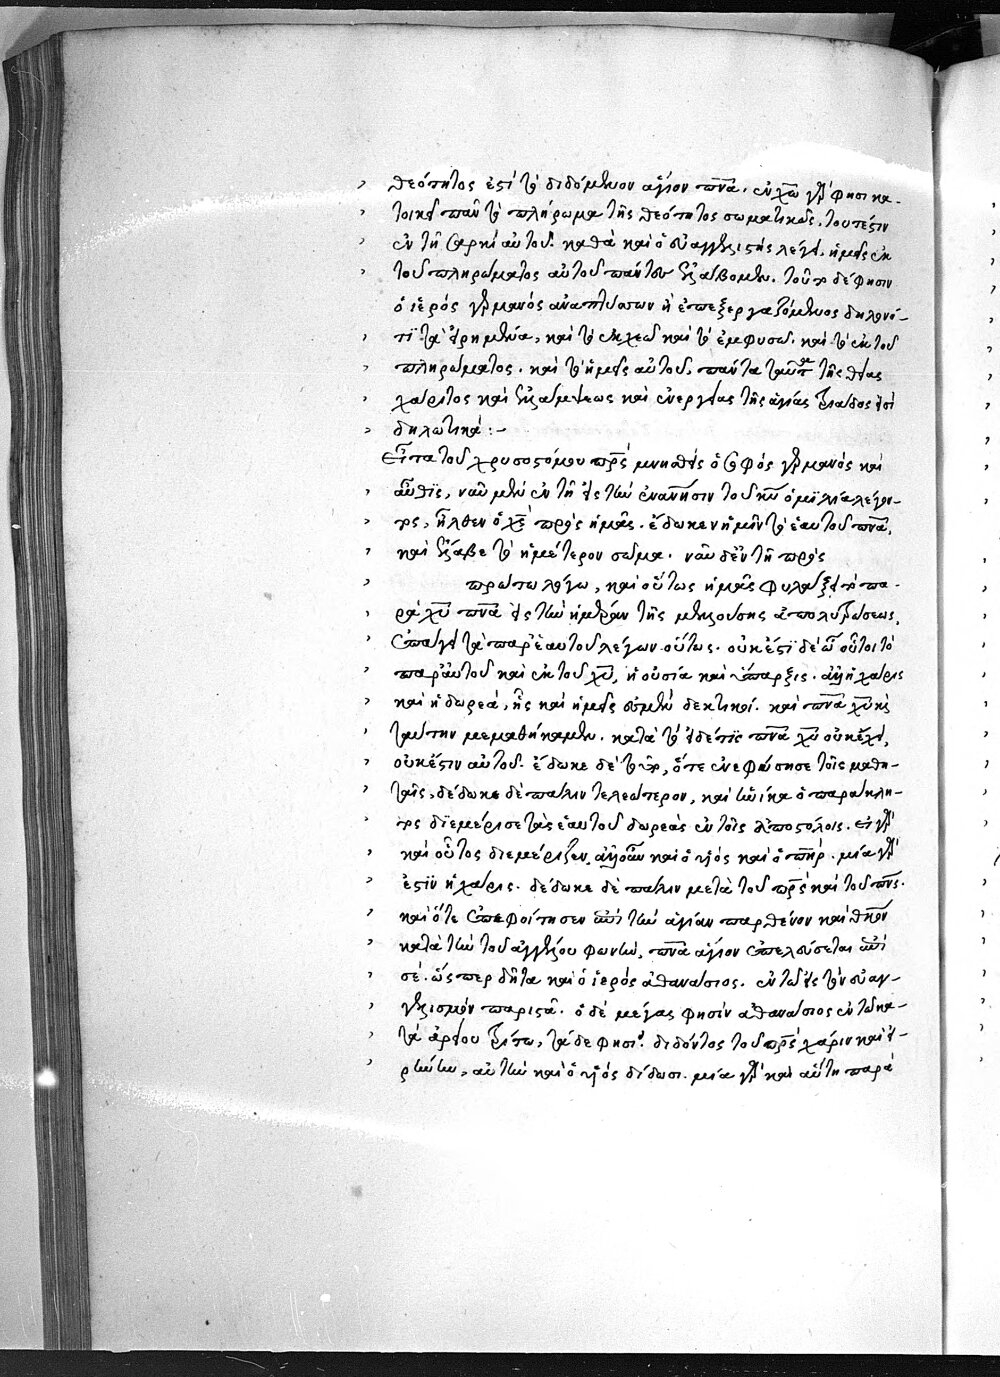 θεότητος ἐστὶ τὸ διδόμενον ἅγιον πνα. ἐν χω γὰρ φησι κα-
τοικεῖ πᾶν τὸ πλήρωμα τῆς θεότητος σωματικῶς. τουτέστιν
ἐν τῇ σαρκὶ αὐτοῦ. καθὰ καὶ ὁ εὐαγγελιστὴς λέγει, ἡμεῖς ἐκ
τοῦ πληρώματος αὐτοῦ πάντες ἐλάβομεν. τοῦτο δέ φησιν
ὁ ἱερὸς γερμανὸς ἀναπτύσσων ἢ ἐπεξεργαζόμενος δηλονό-
τι τὰ εἰρημένα, καὶ τὸ ἐκχεῶ καὶ τὸ ἐμφυσῶ. καὶ τὸ ἐκ τοῦ
πληρώματος. καὶ τὸ ἡμεῖς αὐτοῦ. πάντα ταῦτα τῆς θείας
χάριτος καὶ ἐλλάμψεως καὶ ἐνεργείας τῆς ἁγίας τριάδος εἰσὶ
δηλωτικά :-
Εἶτα τοῦ χρυσοστόμου πρς μνησθεὶς ὁ σοφὸς γερμανὸς καὶ
αὖθις, νῦν μὲν ἐν τῇ εἰς τὴν γέννησιν τοῦ κυ ὁμιλία λέγον-
τος, ἦλθεν ὁ χς πρὸς ἡμᾶς. ἔδωκεν ἡμῖν τὸ ἑαυτοῦ πνα,
καὶ ἔλαβε τὸ ἡμέτερον σῶμα. νῦν δ' ἐν τῇ πρὸς
πρώτω λόγω, καὶ οὕτως ἡμᾶς φυλάξει τὸ πα-
ρὰ χυ πνα εἰς τὴν ἡμέραν τῆς μελλούσης ἀπολυτρώσεως,
ἐπάγει τὰ παρ' ἑαυτοῦ λέγων οὕτως. οὐκ ἔστι δὲ οὗτοι τὸ
παρ' αὐτοῦ καὶ ἐκ τοῦ χυ, ἡ οὐσία καὶ ὕπαρξις. ἀλλ' ἡ χάρις
καὶ ἡ δωρεά, ἧς καὶ ἡμεῖς ἐσμὲν δεκτικοί. καὶ πνα χυ
ταύτην μεμαθήκαμεν. κατὰ τὸ εἰ δέ τις πνα χυ οὐκ ἔχει,
οὐκ ἔστιν αὐτοῦ. ἔδωκε δὲ τοῦτο, ὅτε ἐνεφύσησε τοῖς μαθη-
ταῖς, δέδωκε δὲ πάλιν τελεώτερον, καὶ ἡνίκα ὁ παράκλη-
τος διεμέρισε τὰς ἑαυτοῦ δωρεὰς ἐν τοῖς ἀποστόλοις. εἰ γὰρ
καὶ οὗτος διεμέριζεν, ἀλλ' οὖν καὶ ὁ υἱὸς καὶ ὁ πηρ. μία γὰρ
ἐστὶν ἡ χάρις. δέδωκε δὲ πάλιν μετὰ τοῦ πρς καὶ τοῦ πνς.
καὶ ὅτε ἐπεφοίτησεν ἐπὶ τὴν ἁγίαν παρθένον καὶ θκον
κατὰ τὴν τοῦ ἀγγέλου φωνήν, πνα ἅγιον ἐπελεύσεται ἐπὶ
σέ. ὥσπερ δῆτα καὶ ὁ ἱερὸς ἀθανάσιος. ἐν τῶ εἰς τὸν εὐαγ-
γελισμὸν παριστᾶ. ὁ δὲ μέγας φησὶν ἀθανάσιος ἐν τῶ κα-
τὰ ἀρείου τρίτω, τάδε φησί. διδόντος τοῦ πρς χάριν καὶ εἰ-
ρήνην, αὐτὴν καὶ ὁ υἱὸς δίδωσι. μία γὰρ καὶ αὕτη παρὰ